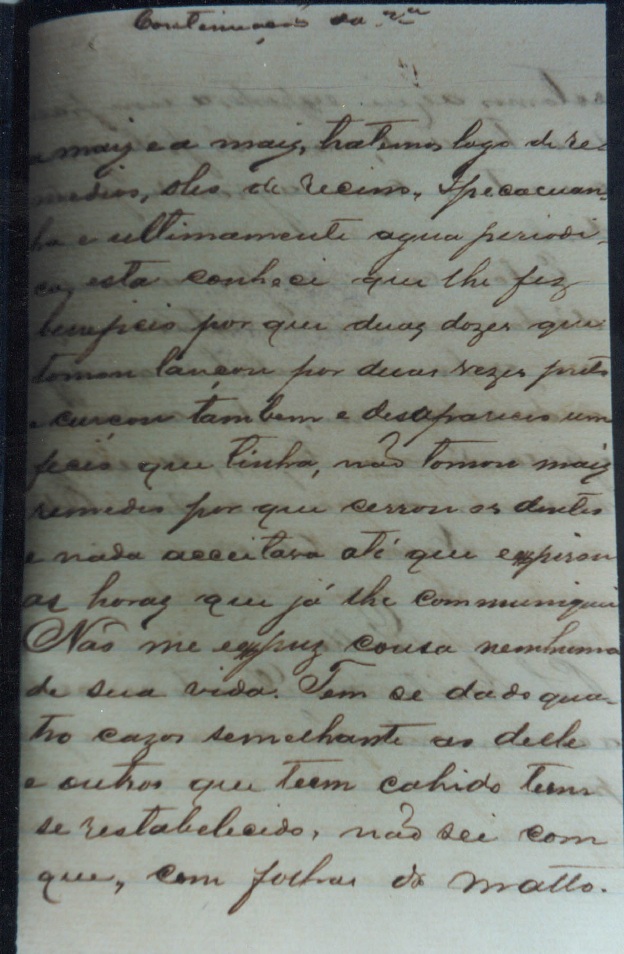 Continuação da 2ª
a mais e a mais, tratemos logo de re-
medios, oleo de recino, Ipecacuan-
ha e ultimamente agua periodi-
ca, esta conheci que lhe fez
beneficio por que duas dozes que
tomou lançou por duas vezes preto
e cursou tambem e desapareceu um
que tinha, não tomou mais
remedio por que cerrou os dentes
e nada acceitava até que expirou
as horas que já lhe communiquei
Não me expuz cousa nenhuma
de sua vida. Tem se dado qua-
tro cazos semelhante ao delle
e outros que teem cahido tem
se restabelecido, não sei com
que, com folhas do matto.